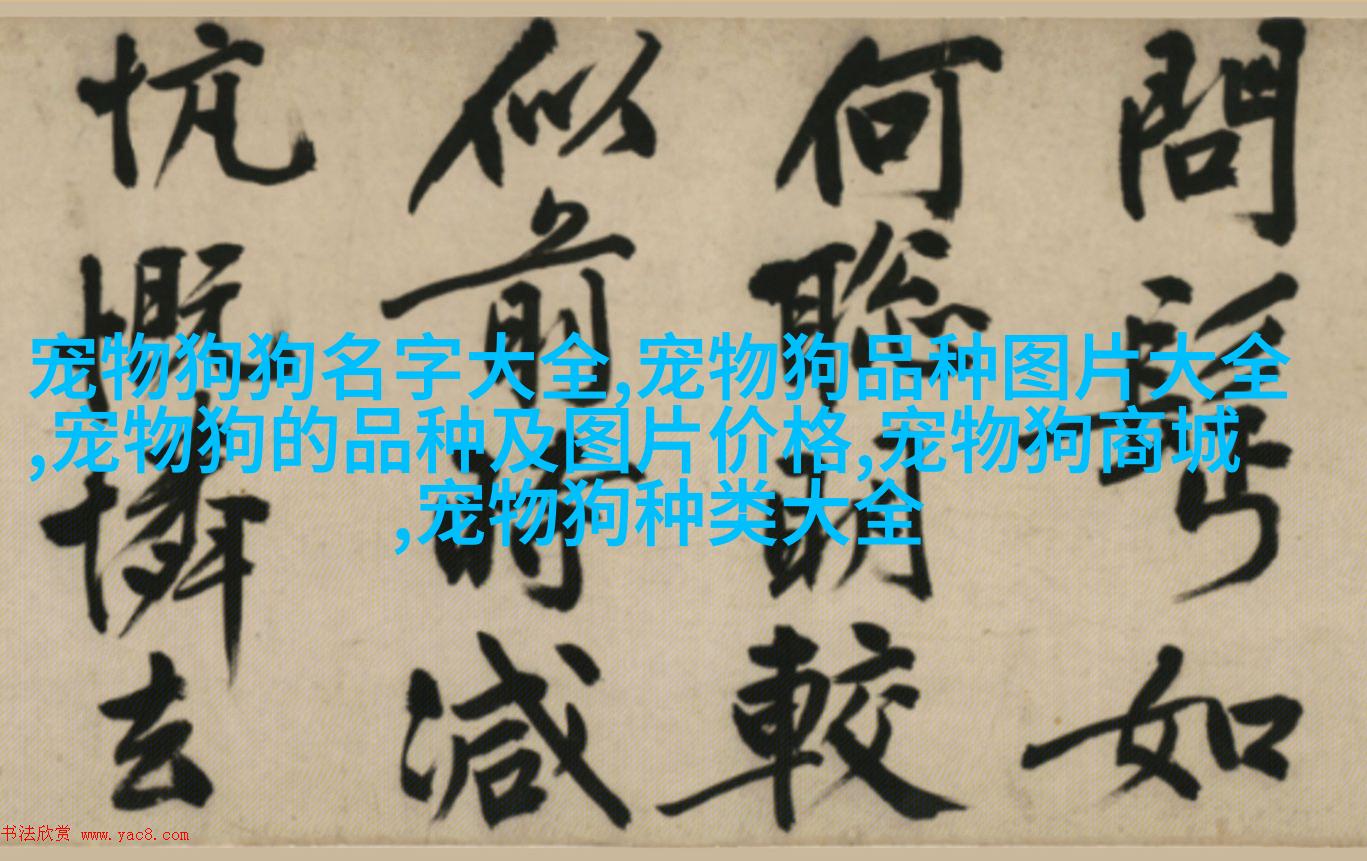 問
如
何聡明較
似前時減
忼慨憐去
宠物狗狗名字大全,宠物狗品种图片大全
,宠物狗的品种及图片价格,宠物狗商城
,宠物狗种类大全
书法欣赏 www.yac8.com